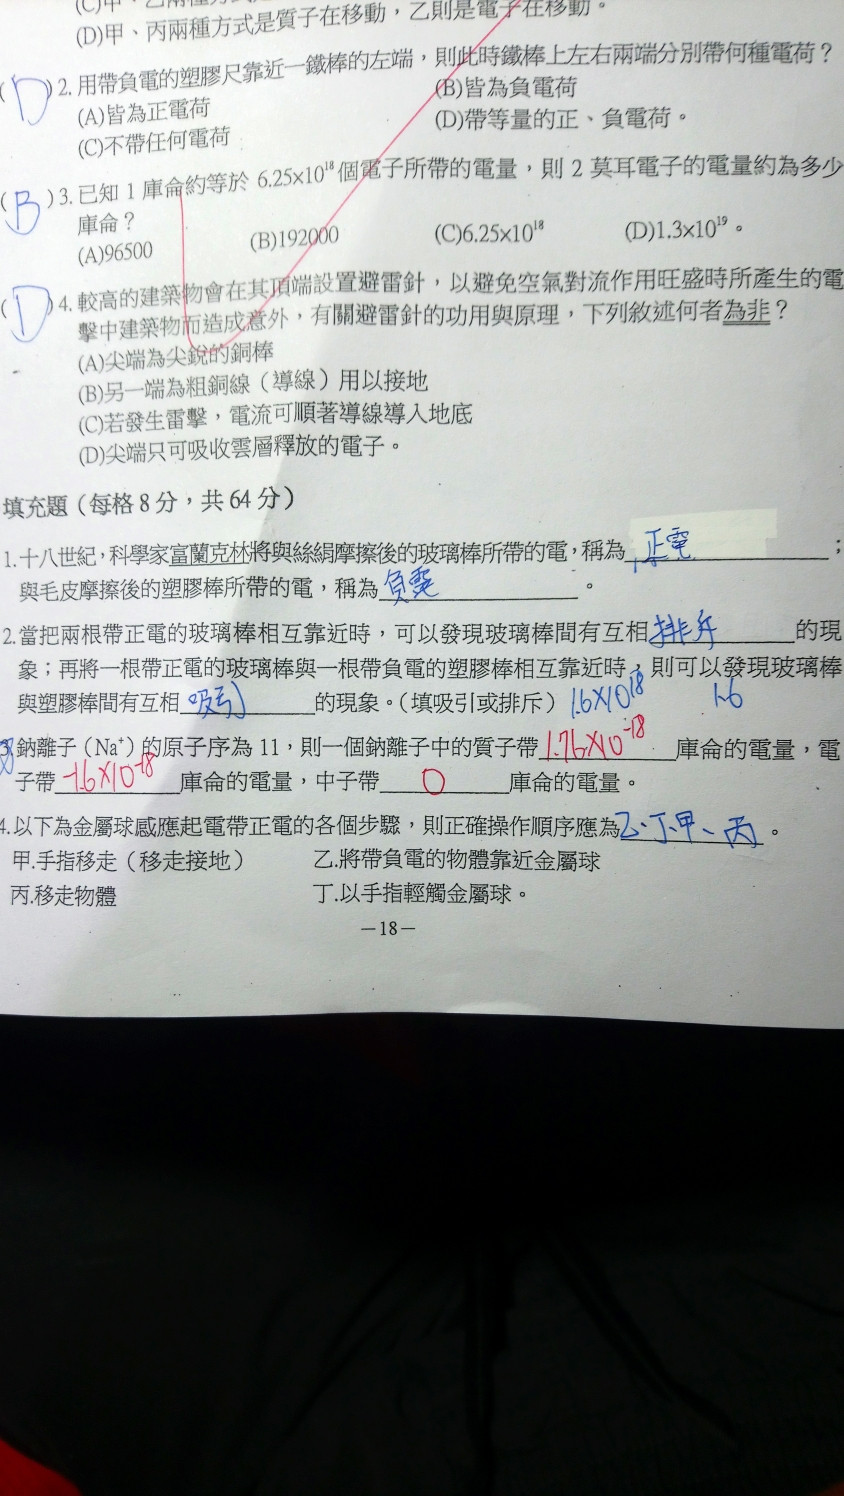 (C)甲、乙兩種方式
(D)甲、丙兩種方式是質子在移動，乙則是電子在移動。
(D)2. 用帶負電的塑膠尺靠近一鐵棒的左端，則此時鐵棒上左右兩端分別帶何種電荷？
(A)皆為正電荷 (B)皆為負電荷
(C)不帶任何電荷 (D)帶等量的正、負電荷。
(B)3. 已知 1 庫侖約等於 6.25×10¹⁸ 個電子所帶的電量，則 2 莫耳電子的電量約為多少
庫侖？
(A)96500 (B)192000 (C)6.25×10¹⁸ (D)1.3×10¹⁹。
(D)4. 較高的建築物會在其頂端設置避雷針，以避免空氣對流作用旺盛時所產生的電
擊中建築物而造成意外，有關避雷針的功用與原理，下列敘述何者為非？
(A)尖端為尖銳的銅棒
(B)另一端為粗銅線（導線）用以接地
(C)若發生雷擊，電流可順著導線導入地底
(D)尖端只可吸收雲層釋放的電子。
填充題（每格 8 分，共 64 分）
1.十八世紀，科學家富蘭克林將與絲絹摩擦後的玻璃棒所帶的電，稱為 正電 ；
與毛皮摩擦後的塑膠棒所帶的電，稱為 負電 。
2.當把兩根帶正電的玻璃棒相互靠近時，可以發現玻璃棒間有互相 排斥 的現
象；再將一根帶正電的玻璃棒與一根帶負電的塑膠棒相互靠近時，則可以發現玻璃棒
與塑膠棒間有互相 吸引 的現象。（填吸引或排斥） 1.6×10¹⁸ 1.6
3.鈉離子（Na⁺）的原子序為 11，則一個鈉離子中的質子帶 1.76×10⁻¹⁸ 庫侖的電量，電
子帶 -1.6×10⁻¹⁸ 庫侖的電量，中子帶 0 庫侖的電量。
4.以下為金屬球感應起電帶正電的各個步驟，則正確操作順序應為 乙、丁、甲、丙 。
甲.手指移走（移走接地） 乙.將帶負電的物體靠近金屬球
丙.移走物體 丁.以手指輕觸金屬球。
－18－